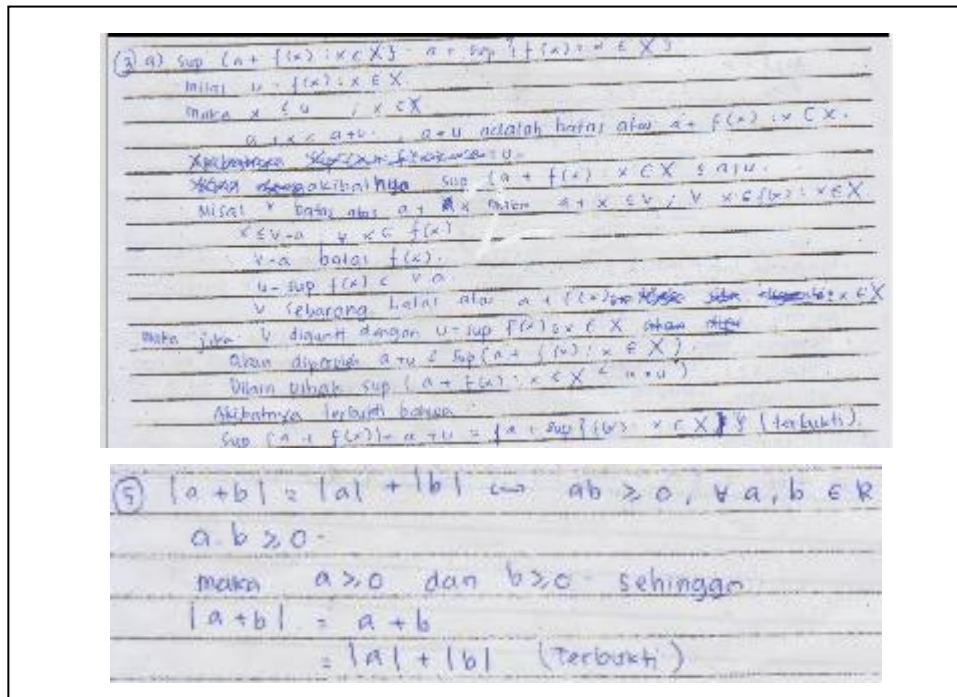 ③ a) sup {a + f(x) : x ∈ X} = a + sup {f(x) : x ∈ X}
misal u = f(x) : x ∈ X.
maka x ≤ u ; x ∈ X
a + x ≤ a+u. , a+u adalah batas atas a + f(x) : x ∈ X.
akibatnya sup {a + f(x) : x ∈ X ≤ a+u.
Misal v batas atas a + x maka a + x ≤ v, ∀ x ∈ f(x) : x ∈ X
x ≤ v-a ∀ x ∈ f(x)
v-a batas f(x).
u = sup f(x) ≤ v-a
v sebarang batas atas a + f(x) x ∈ X
maka jika v diganti dengan u = sup f(x) : x ∈ X
akan diperoleh a+u ≤ sup (a + f(x) : x ∈ X).
Dilain pihak sup (a + f(x) : x ∈ X ≤ a+u)
Akibatnya terbukti bahwa
sup {a + f(x)} = a + u = {a + sup {f(x) : x ∈ X}} (terbukti).
⑤ |a + b| = |a| + |b| ⟺ ab ≥ 0, ∀ a, b ∈ R
a.b ≥ 0.
maka a ≥ 0 dan b ≥ 0 sehingga
|a + b| = a + b
= |a| + |b| (Terbukti)